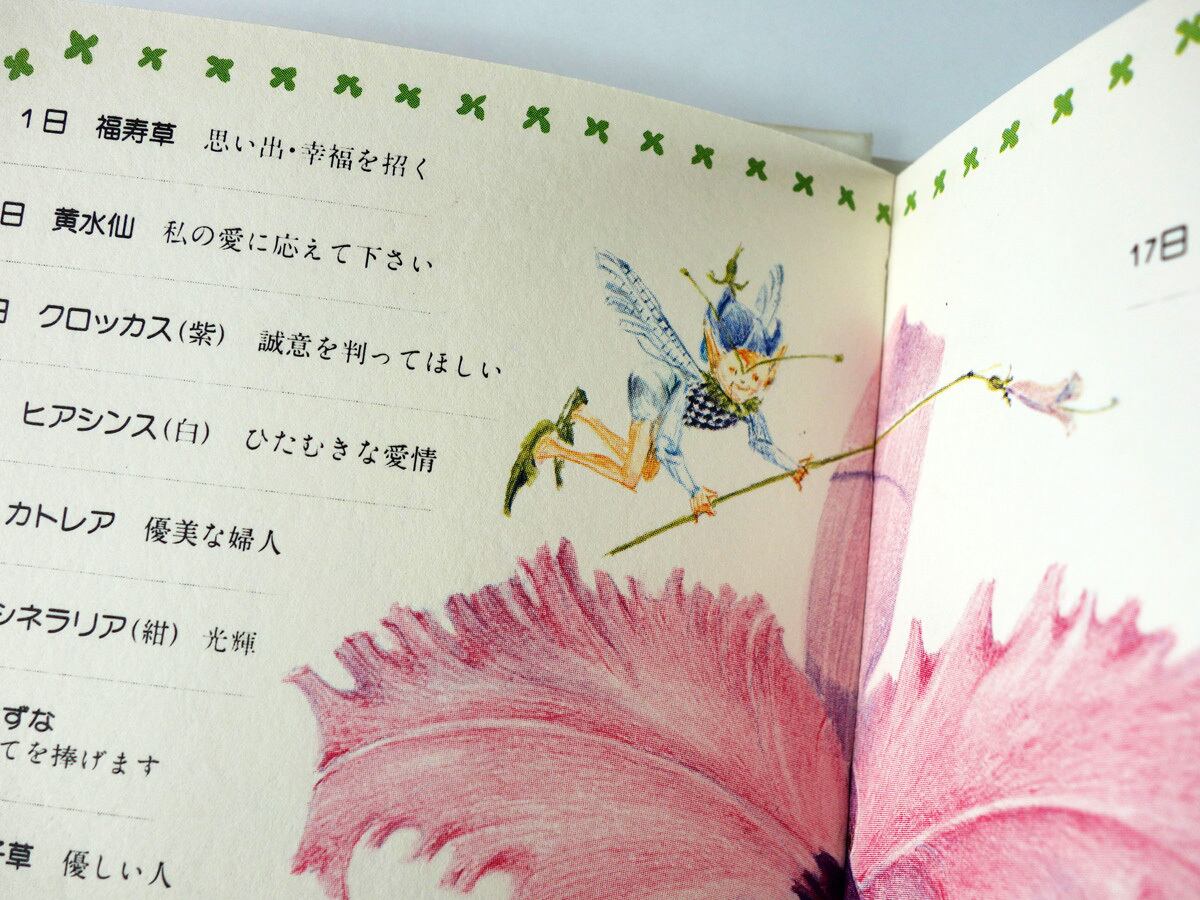 1日 福寿草 思い出・幸福を招く
日 黄水仙 私の愛に応えて下さい
日 クロッカス(紫) 誠意を判ってほしい
ヒアシンス(白) ひたむきな愛情
カトレア 優美な婦人
シネラリア(紺) 光輝
ずな
てを捧げます
草 優しい人
17日